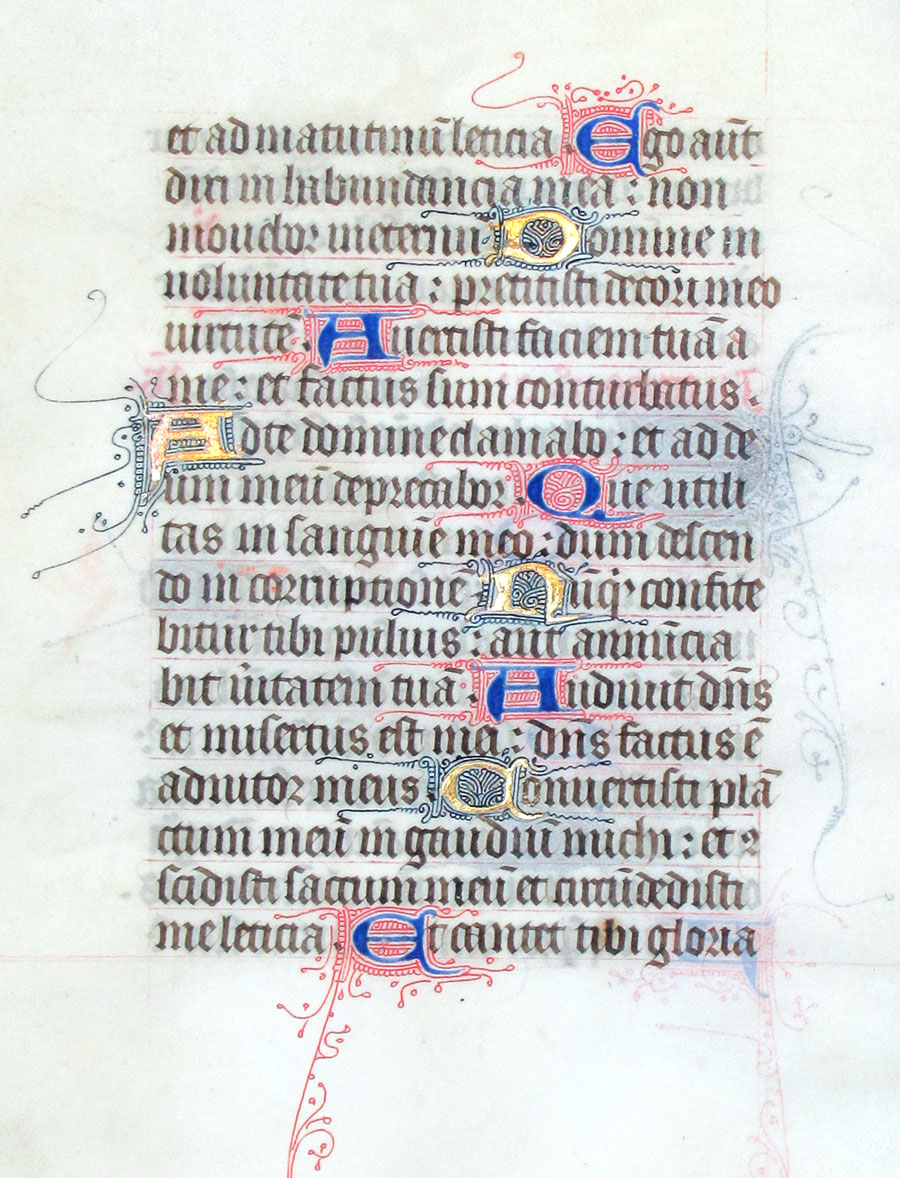 et ad matutinū leticia. Ego aūt
dixi in habundancia mea: non
mouebor ineternū. Domine in
uoluntate tua: prestitisti decori meo
uirtutē. Auertisti faciem tuā a
me: et factus sum conturbatus.
Ad te domine clamabo: et ad de
um meū deprecabor. Que utili
tas in sanguīe meo: dum descen
do in corrupcionē. Nūq̄ confite
bitur tibi puluis: aut annūcia
bit ūitatem tuā. Audiuit dn̄s
et misertus est mei: dn̄s factus ē
adiutor meus. Conuertisti plā
ctum meū in gaudiū michi: et 9
scidisti saccum meū et circūdedisti
me leticia. Et cantet tibi gloria